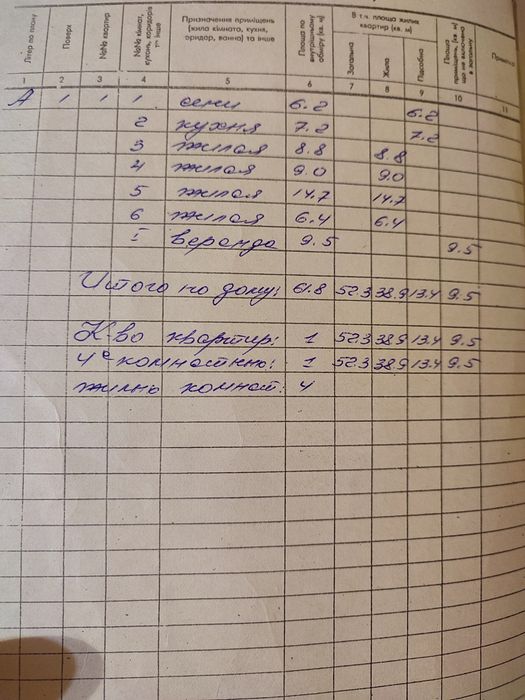 Літер по плану
Поверх
№№ квартир
№№ кімнат, кухонь, коридорів та інше
Призначення приміщень (жила кімната, кухня, коридор, ванна) та інше
Площа по внутрішньому обміру (кв. м)
В т.ч. площа жилих квартир (кв. м)
Загальна
Жила
Підсобна
Площа приміщень, (кв. м) що не включена в загальну
1 2 3 4 5 6 7 8 9 10 11
А 1 1 1 сени 6.2 6.2
2 кухня 7.2 7.2
3 жилая 8.8 8.8
4 жилая 9.0 9.0
5 жилая 14.7 14.7
6 жилая 6.4 6.4
I веранда 9.5 9.5
Итого по дому: 61.8 52.3 38.9 13.4 9.5
К-во квартир: 1 52.3 38.9 13.4 9.5
4х комнатны: 1 52.3 38.9 13.4 9.5
жилых комнат: 4